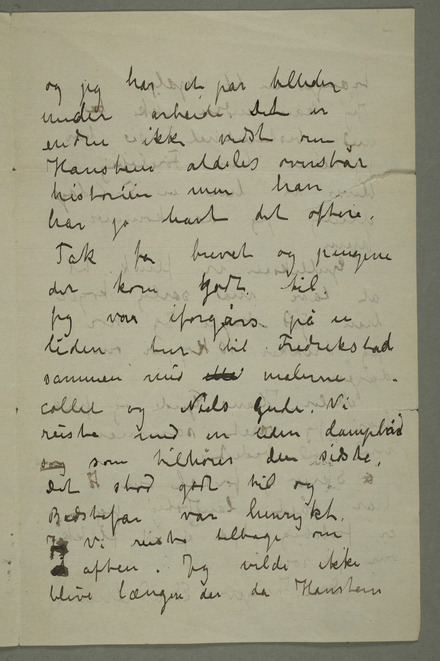 og jeg har et par billeder
under arbeide. Det er
endnu ikke vidst om
Hansteen aldeles overstår
historien men han
har jo havt det oftere.
Tak for brevet og pengene
det kom godt til.
Jeg var iforgårs på en
liden tur til Fredrikstad
sammen med malerne
Collet og Niels Gude. Vi
reiste med en liden dampbåd
som tilhører den sidste.
Det stod godt til og
Bedstefar var henrykt.
Vi reiste tilbage om
aften. Jeg vilde ikke
blive længer der da Hansteen